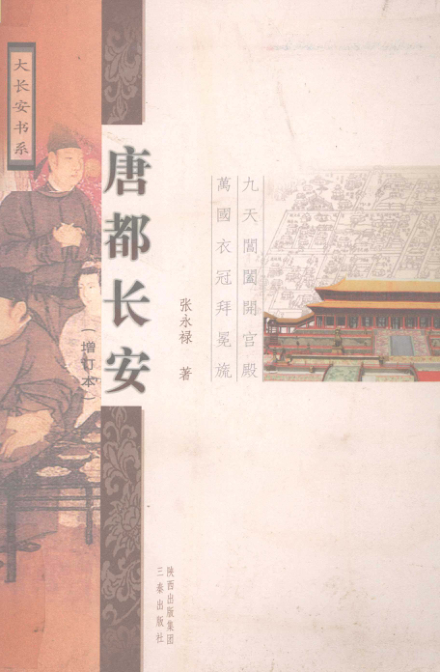 大长安书系
唐都长安
(增订本)
九天閶闔開官殿
萬國衣冠拜冕旒
张永禄 著
陕西出版集团
三秦出版社